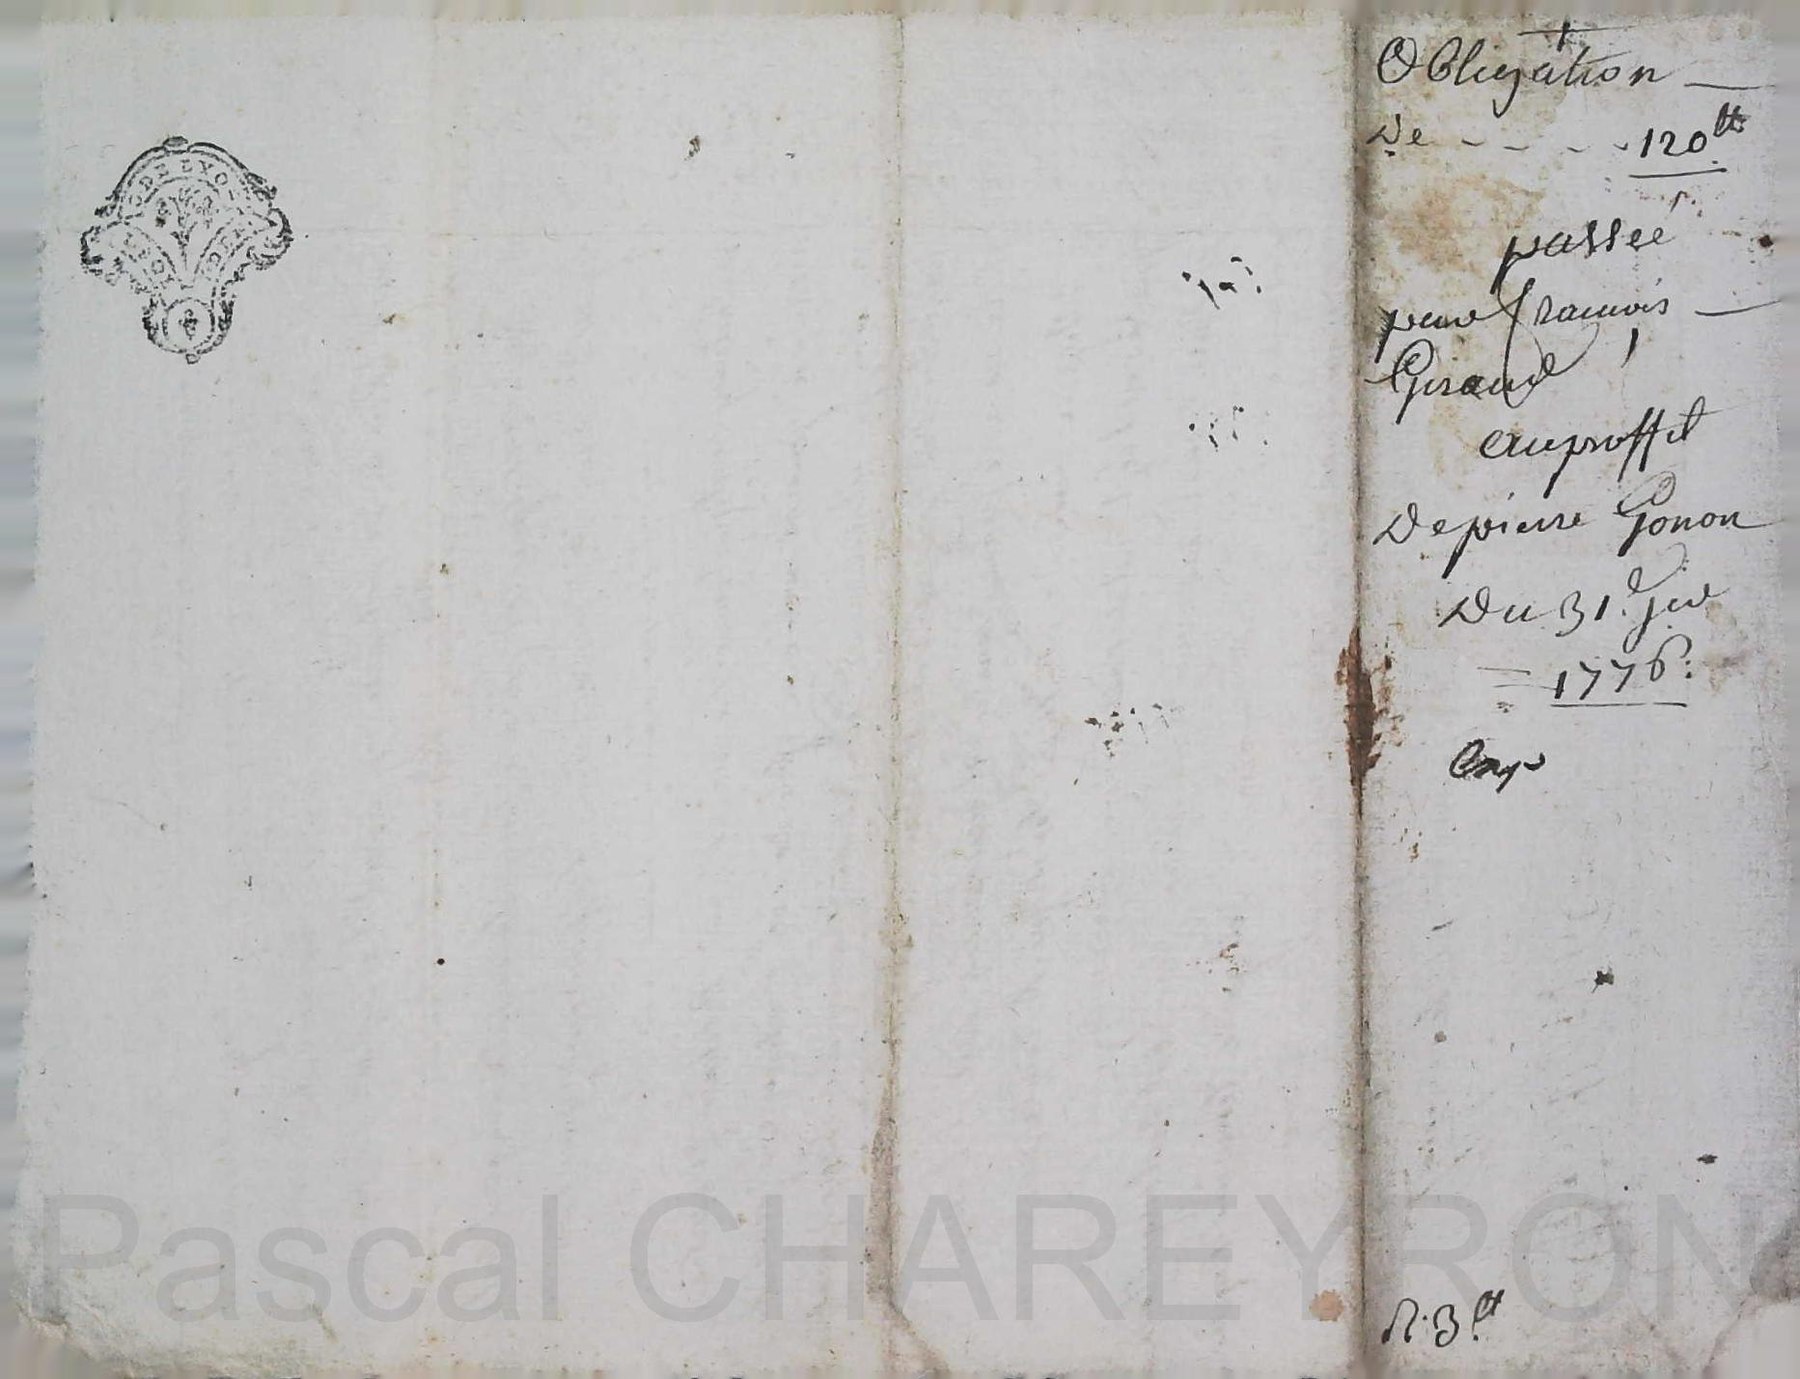 Obligation
De - - - - - 120lt
passée
par francois
Giraud
au proffit
De pierre Gonon
Du 31.e
1776.
DE LYO
Pascal CHAREYRON